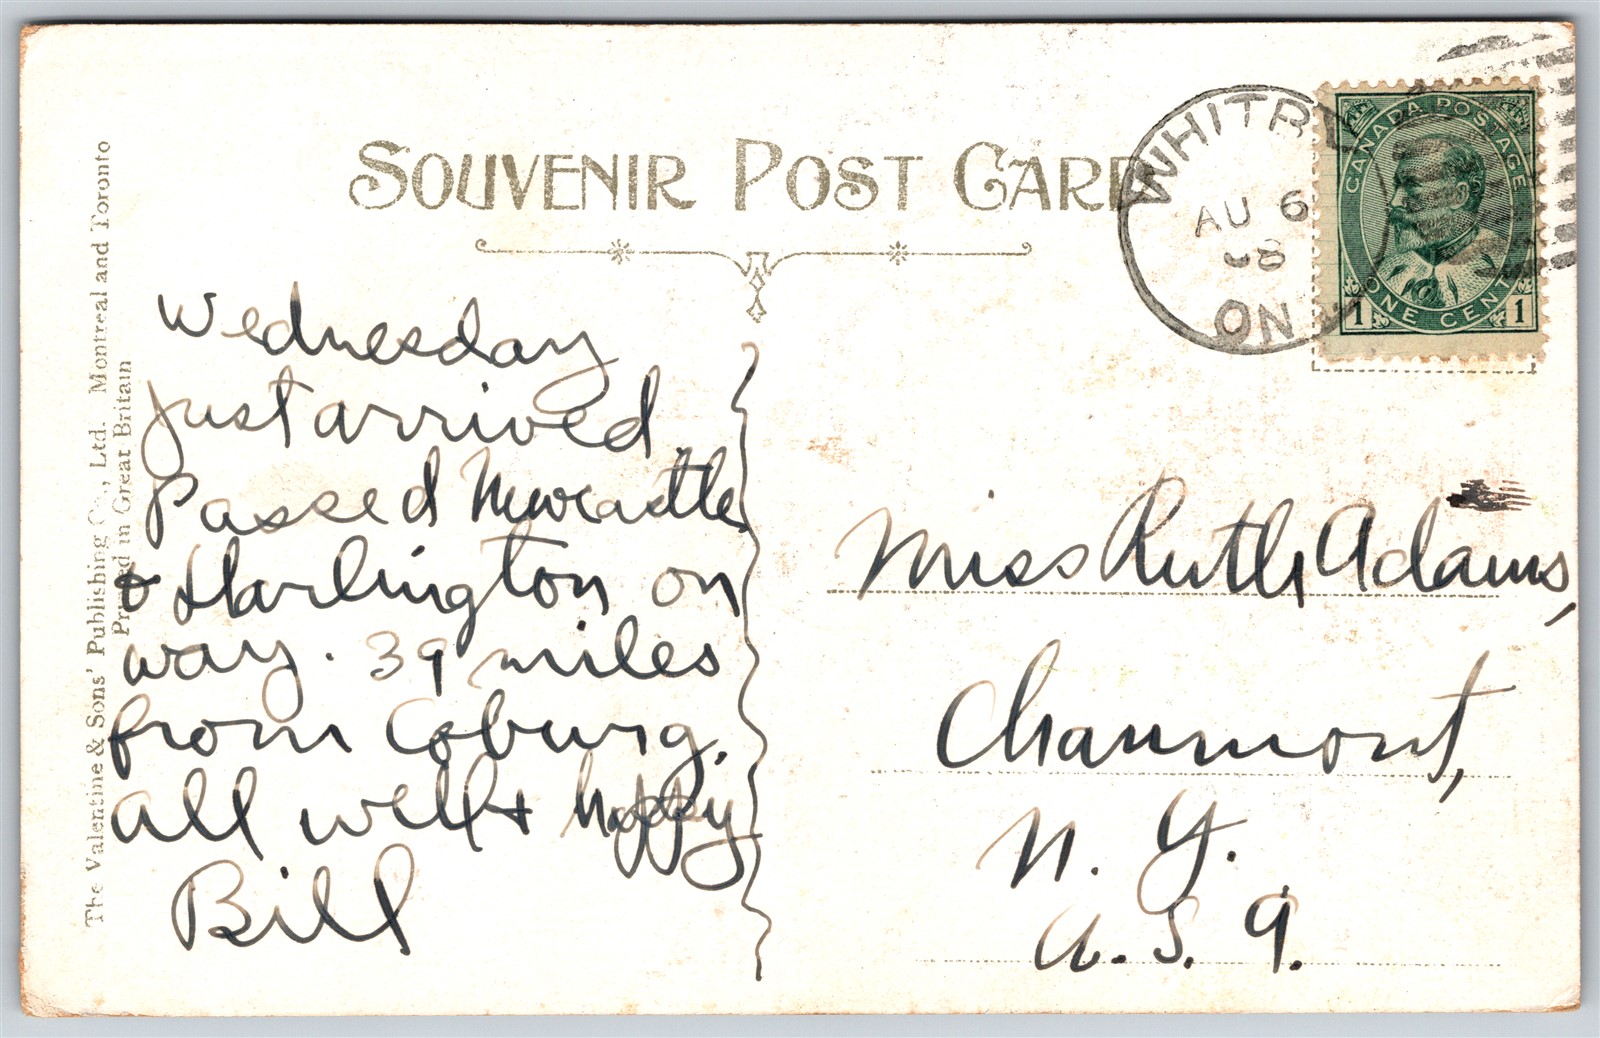 SOUVENIR POST CARD
WHITBY
AU 6
08
ONT
CANADA POSTAGE
1 ONE CENT 1
The Valentine & Sons' Publishing Co., Ltd. Montreal and Toronto
Printed in Great Britain
Wednesday
Just arrived
Passed Newcastle
& Darlington on
way. 39 miles
from Coburg.
all well & happy
Bill
Miss Ruth Adams,
Chaumont,
N. Y.
U. S. A.